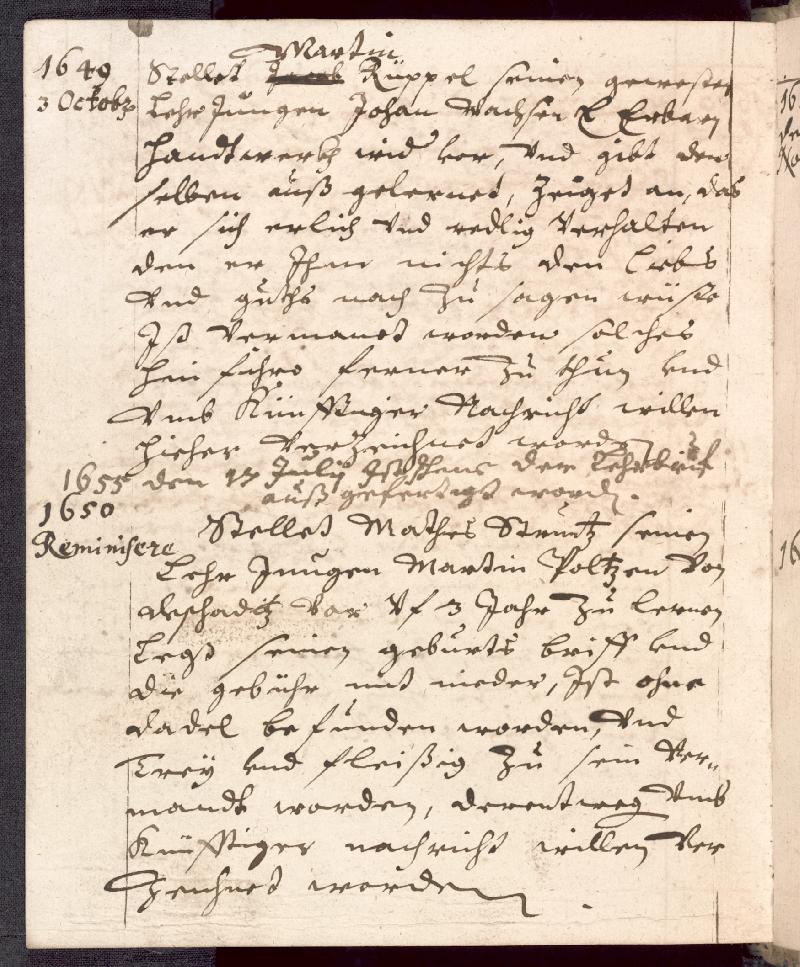 Martin
1649 Stellet Jacob Küppel seinen gewesten
3 Octobr Lehr Jungen Johan Wachsen E Erbarn
Handtwerck wid vor, Vnd gibt den
selben auß gelernet, Zeuget an, das
er sich erlich Vnd redlig Verhalten
den er Ihm nichts den Liebs
Vnd guths nach Zu sagen wüste
Ist Vermanet worden solches
hin führo ferner Zu thun vnd
Vmb Künfftiger Nachricht willen
hieher Verzeichnet worden
1655 den 17 July Ist Ihme der Lehrbrief
auß gefertigt word.
1650 Stellet Mathes Struntz seinen
Reminisere Lehr Jungen Martin Poltzen Von
Vor Vf 3 Jahr Zu lernen
Legt seinen geburts brieff vnd
die gebühr mit nieder, Ist ohne
dadel befunden worden, Vnd
Trey vnd fleißig Zu sein Ver„
mandt worden, derentweg Vmb
Künfftiger nachricht willen Ver
Zeichnet worden